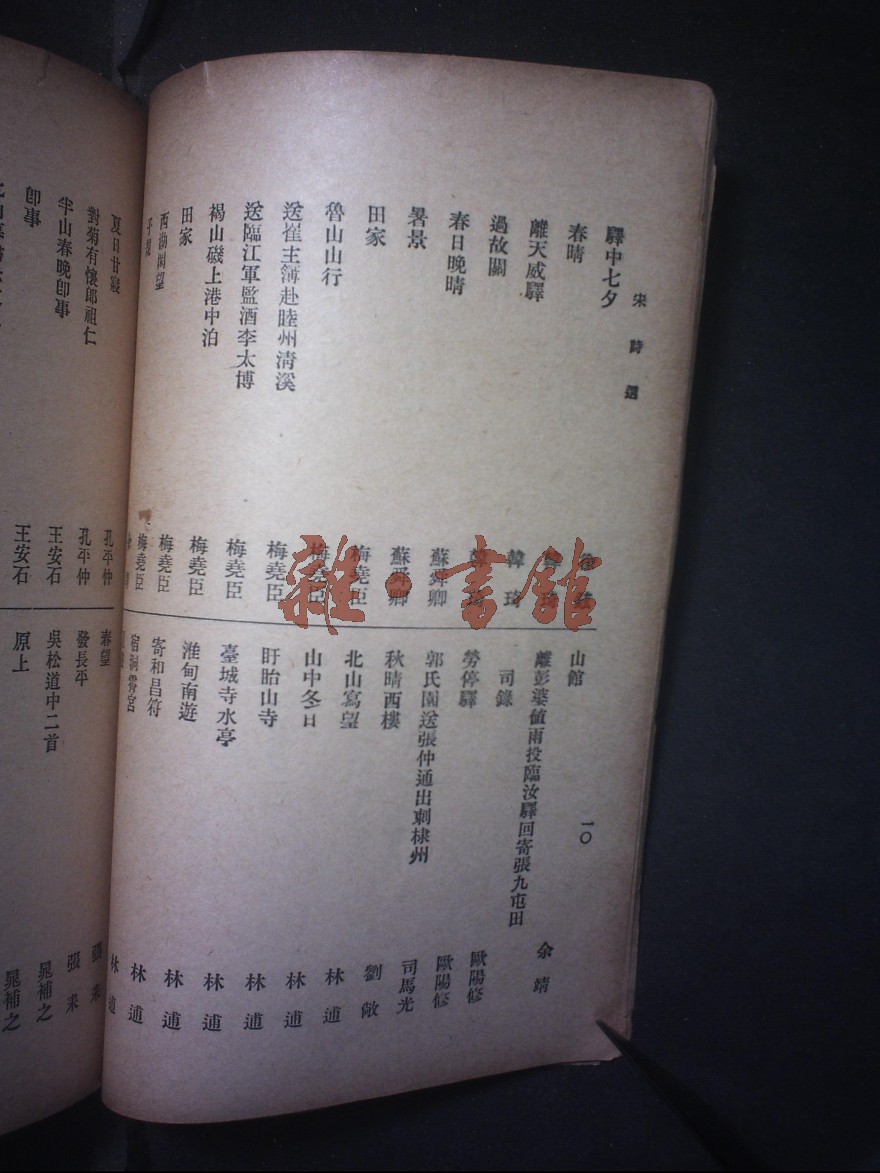 宋詩選
一〇
驛中七夕
春晴
離天威驛 韓琦
過故關 韓琦
春日晚晴 韓琦
暑景 蘇舜卿
田家 蘇舜卿
魯山山行 梅堯臣
送崔主簿赴睦州清溪 梅堯臣
送臨江軍監酒李太博 梅堯臣
褐山磯上港中泊 梅堯臣
田家 梅堯臣
西湖閑望 梅堯臣
梅堯臣
山館 余靖
離彭婆値雨投臨汝驛回寄張九屯田
司錄 歐陽修
勞停驛 歐陽修
郭氏園送張仲通出刺棣州 司馬光
秋晴西樓 劉敞
北山寫望 林逋
山中冬日 林逋
盱眙山寺 林逋
臺城寺水亭 林逋
淮甸南遊 林逋
寄和昌符 林逋
宿洞霄宮 林逋
夏日甘寢 孔平仲
對菊有懷郎祖仁 孔平仲
半山春晚卽事 王安石
卽事 王安石
春望 張耒
發長平 張耒
吳松道中二首 晁補之
原上 晁補之
雜·書館